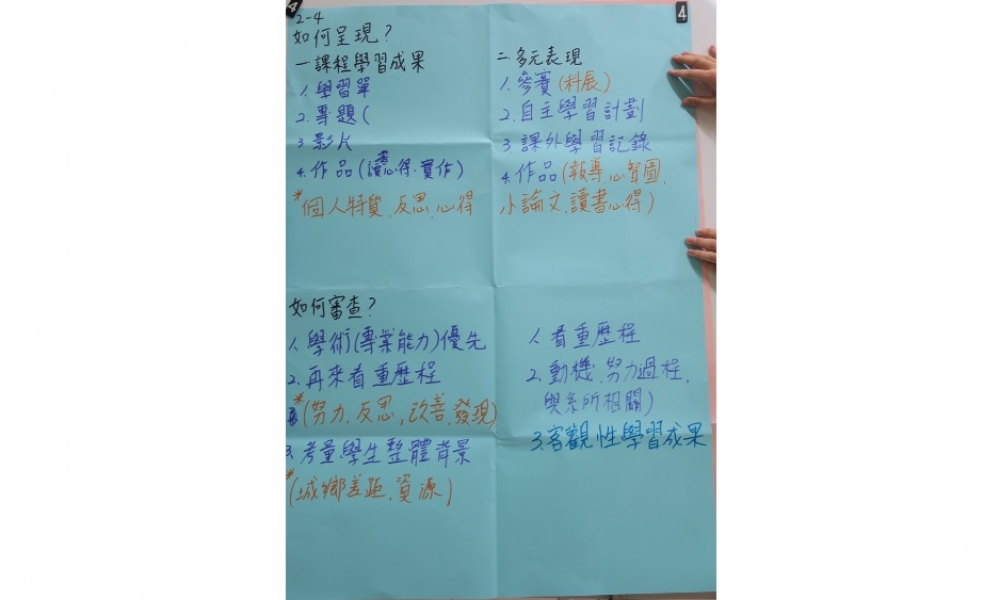 4
2-4
如何呈現?
一課程學習成果
1.學習單
2.專題(
3影片
4.作品(讀書心得.實作)
*個人特質、反思、心得
二.多元表現
1.參賽(科展)
2.自主學習計劃
3.課外學習記錄
4.作品(報導、心智圖、
小論文、讀書心得)
如何審查?
1.學術(專業能力)優先
2.再來看重歷程
*(努力、反思,改善,發現)
3.考量學生整體背景
*(城鄉差距、資源)
1.看重歷程
2.動機、努力過程、
與系所相關)
3.客觀性學習成果